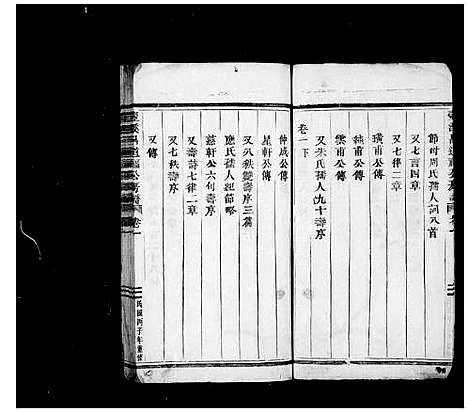 節母周氏孺人詞八首
又七言四章
又七律二章
璜甫公傳
純甫公傳
雲甫公傳
又朱氏孺人九十壽序
卷一下
仲成公傳
星軒公傳
又八秩雙壽序三篇
應氏孺人紀節略
蕊軒公六旬壽序
又壽詩七律二章
又七秩壽序
又傳
民國丙子年重修